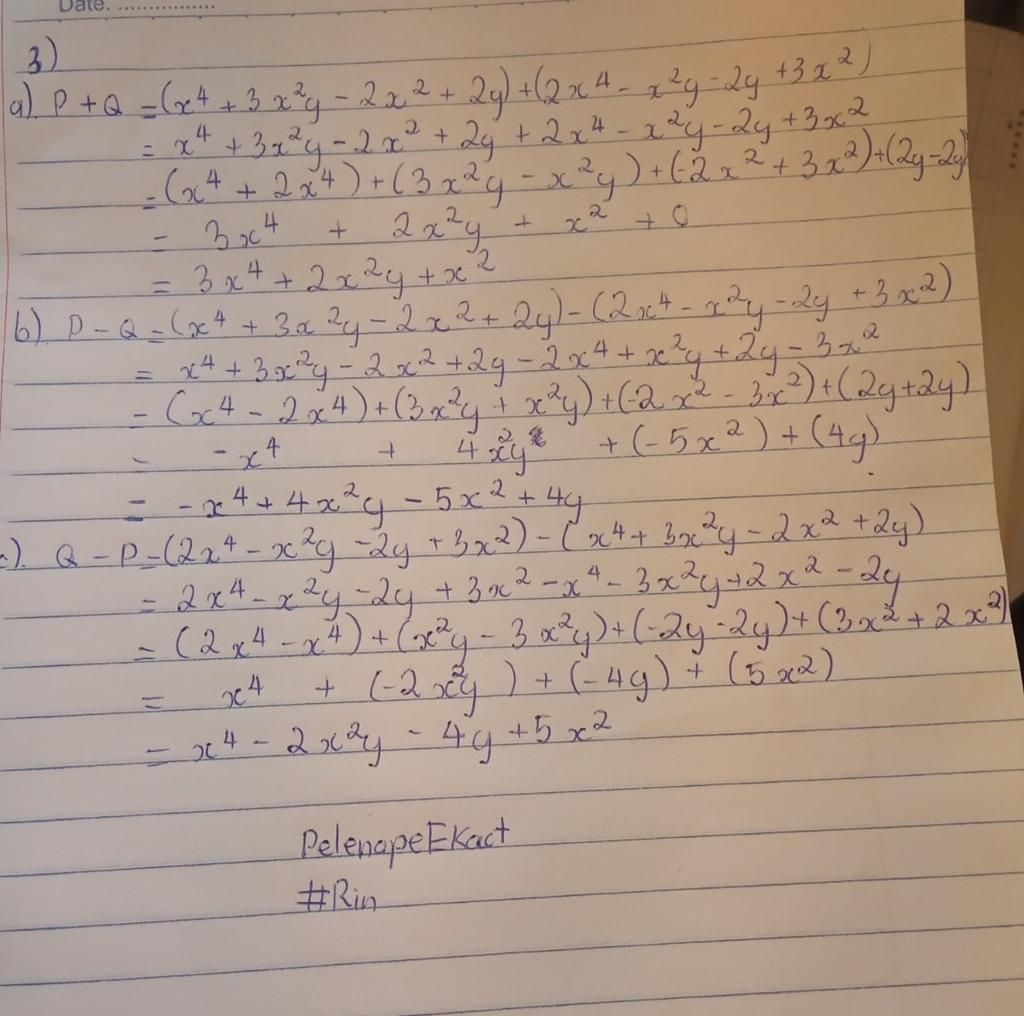 Date. ................
3)
a) P + Q = (x⁴ + 3x²y - 2x² + 2y) + (2x⁴ - x²y - 2y + 3x²)
= x⁴ + 3x²y - 2x² + 2y + 2x⁴ - x²y - 2y + 3x²
= (x⁴ + 2x⁴) + (3x²y - x²y) + (-2x² + 3x²) + (2y - 2y)
= 3x⁴ + 2x²y + x² + 0
= 3x⁴ + 2x²y + x²
b) P - Q = (x⁴ + 3x²y - 2x² + 2y) - (2x⁴ - x²y - 2y + 3x²)
= x⁴ + 3x²y - 2x² + 2y - 2x⁴ + x²y + 2y - 3x²
= (x⁴ - 2x⁴) + (3x²y + x²y) + (-2x² - 3x²) + (2y + 2y)
= -x⁴ + 4x²y + (-5x²) + (4y)
= -x⁴ + 4x²y - 5x² + 4y
c). Q - P = (2x⁴ - x²y - 2y + 3x²) - (x⁴ + 3x²y - 2x² + 2y)
= 2x⁴ - x²y - 2y + 3x² - x⁴ - 3x²y + 2x² - 2y
= (2x⁴ - x⁴) + (x²y - 3x²y) + (-2y - 2y) + (3x² + 2x²)
= x⁴ + (-2x²y) + (-4y) + (5x²)
= x⁴ - 2x²y - 4y + 5x²
PelenapeEKact
#Rin